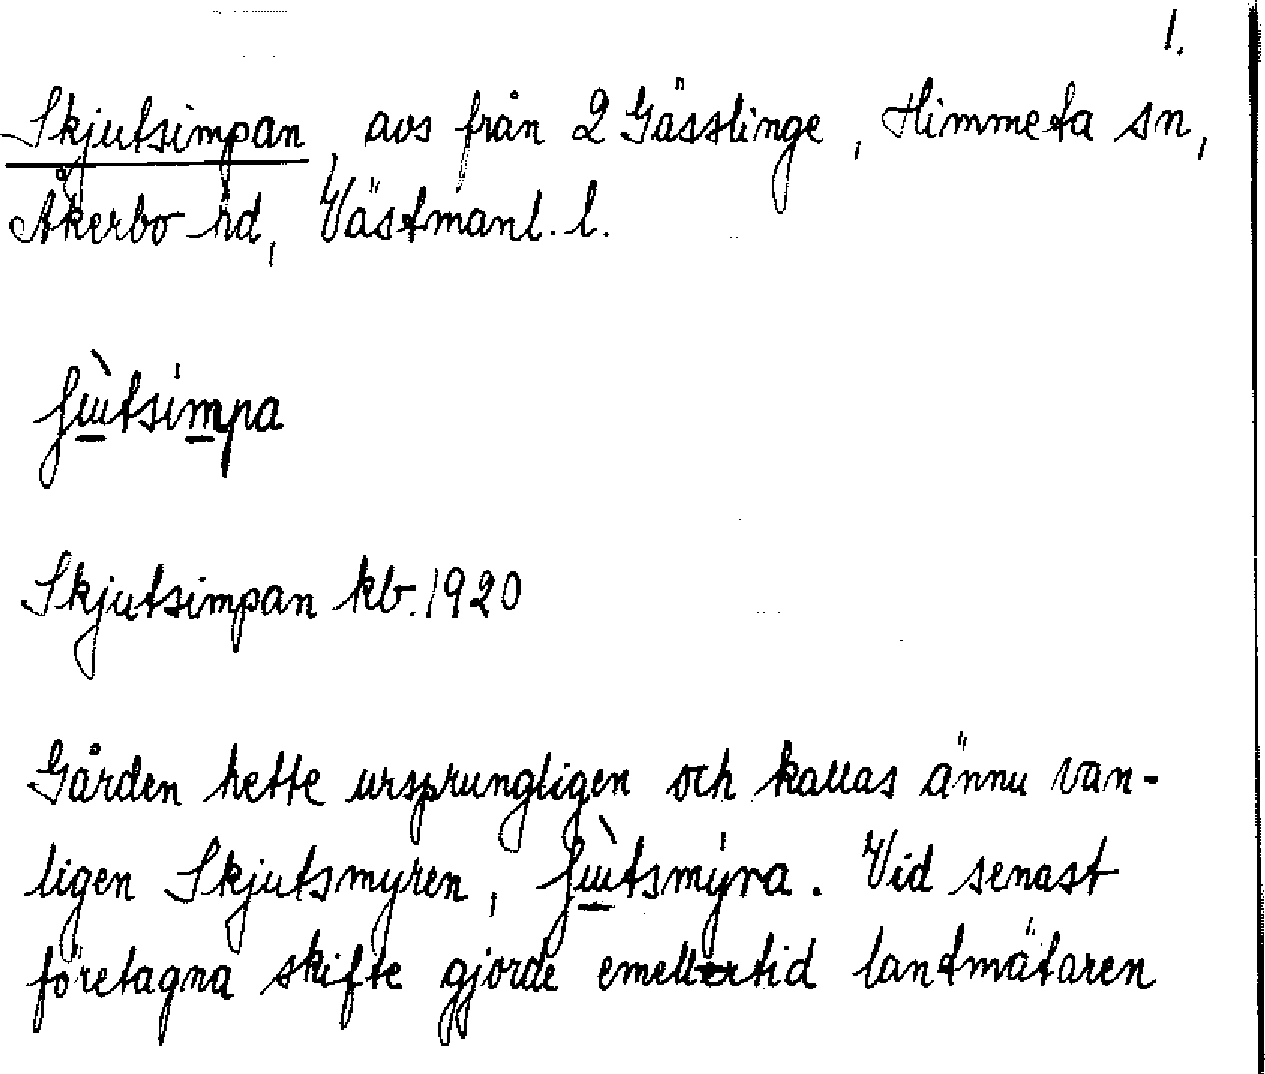 1.
Skjutsimpan, avs från 2 Gässlinge, Himmeta sn,
Åkerbo hd, Västmanl. l.
ʃɯ̀tsímpa
Skjutsimpan kb. 1920
Gården hette ursprungligen och kallas ännu van-
ligen Skjutsmyren, ʃɯ̀tsmýra. Vid senast
företagna skifte gjorde emellertid lantmätaren